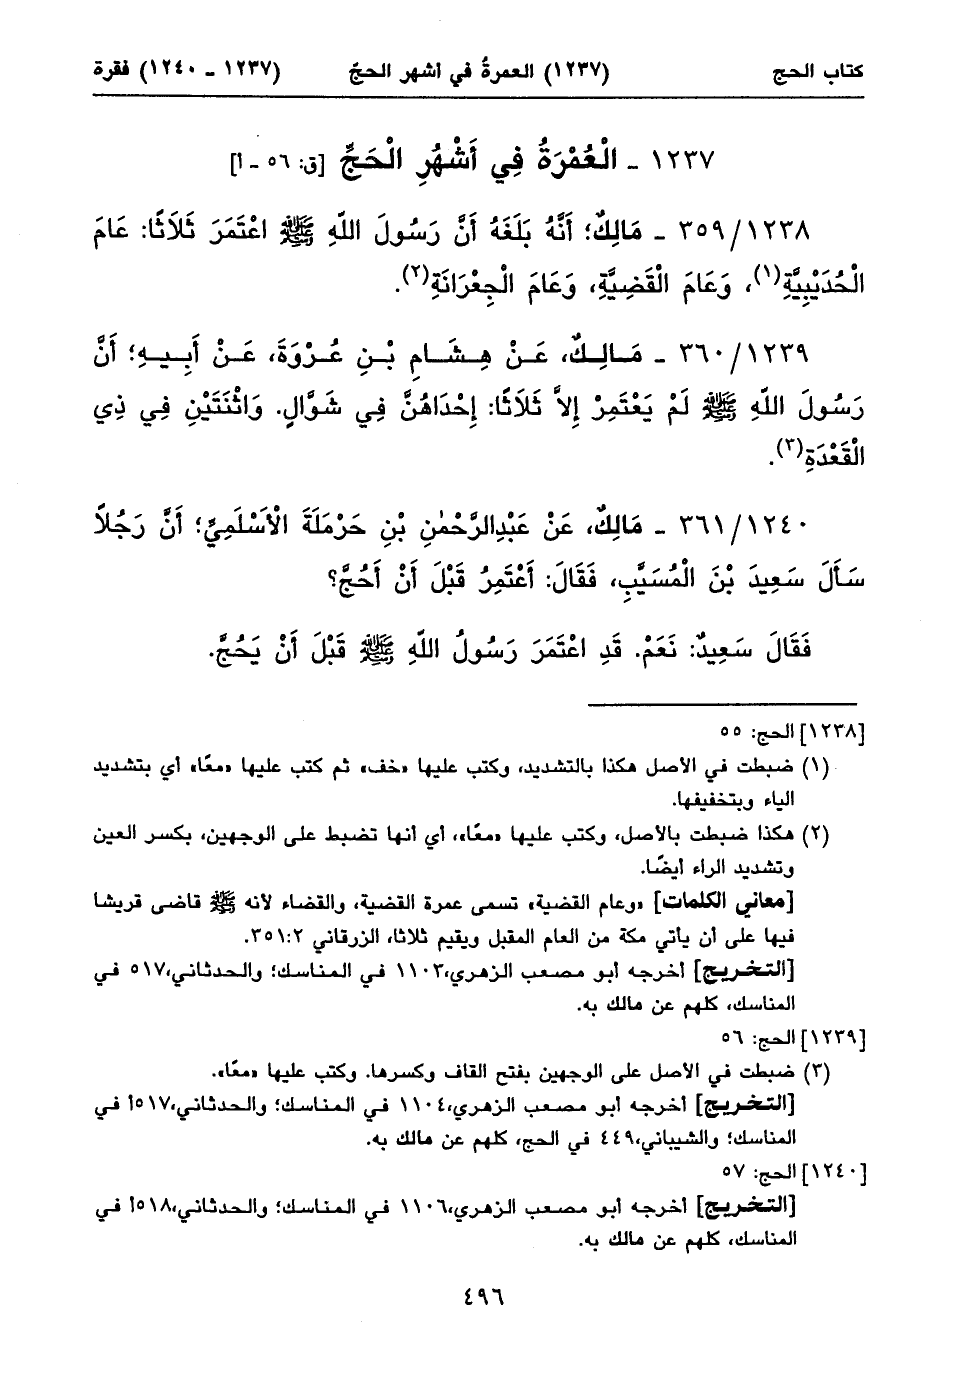 كتاب الحج (١٢٣٧) العمرةُ في أشهر الحجّ (١٢٣٧ - ١٢٤٠) فقرة
١٢٣٧ - الْعُمْرَةُ فِي أَشْهُرِ الْحَجِّ [ق: ٥٦ - أ]
٣٥٩/١٢٣٨ - مَالِكٌ؛ أَنَّهُ بَلَغَهُ أَنَّ رَسُولَ اللهِ ﷺ اعْتَمَرَ ثَلَاثًا: عَامَ
الْحُدَيْبِيَّةِ(١)، وَعَامَ الْقَضِيَّةِ، وَعَامَ الْجِعْرَانَةِ(٢).
٣٦٠/١٢٣٩ - مَالِكٌ، عَنْ هِشَامِ بْنِ عُرْوَةَ، عَنْ أَبِيهِ؛ أَنَّ
رَسُولَ اللهِ ﷺ لَمْ يَعْتَمِرْ إِلاَّ ثَلَاثًا: إِحْدَاهُنَّ فِي شَوَّالٍ. وَاثْنَتَيْنِ فِي ذِي
الْقَعْدَةِ(٣).
٣٦١/١٢٤٠ - مَالِكٌ، عَنْ عَبْدِالرَّحْمٰنِ بْنِ حَرْمَلَةَ الْأَسْلَمِيِّ؛ أَنَّ رَجُلاً
سَأَلَ سَعِيدَ بْنَ الْمُسَيَّبِ، فَقَالَ: أَعْتَمِرُ قَبْلَ أَنْ أَحُجَّ؟
فَقَالَ سَعِيدٌ: نَعَمْ. قَدِ اعْتَمَرَ رَسُولُ اللهِ ﷺ قَبْلَ أَنْ يَحُجَّ.
[١٢٣٨] الحج: ٥٥
(١) ضبطت في الأصل هكذا بالتشديد، وكتب عليها «خف» ثم كتب عليها «معًا» أي بتشديد
الياء وبتخفيفها.
(٢) هكذا ضبطت بالأصل، وكتب عليها «معًا»، أي أنها تضبط على الوجهين، بكسر العين
وتشديد الراء أيضًا.
[معاني الكلمات] «وعام القضية» تسمى عمرة القضية، والقضاء لأنه ﷺ قاضى قريشا
فيها على أن يأتي مكة من العام المقبل ويقيم ثلاثا، الزرقاني ٣٥١:٢.
[التخريج] أخرجه أبو مصعب الزهري،١١٠٣ في المناسك؛ والحدثاني،٥١٧ في
المناسك، كلهم عن مالك به.
[١٢٣٩] الحج: ٥٦
(٣) ضبطت في الأصل على الوجهين بفتح القاف وكسرها. وكتب عليها «معًا».
[التخريج] أخرجه أبو مصعب الزهري،١١٠٤ في المناسك؛ والحدثاني،٥١٧أ في
المناسك؛ والشيباني،٤٤٩ في الحج، كلهم عن مالك به.
[١٢٤٠] الحج: ٥٧
[التخريج] أخرجه أبو مصعب الزهري،١١٠٦ في المناسك؛ والحدثاني،٥١٨أ في
المناسك، كلهم عن مالك به.
٤٩٦